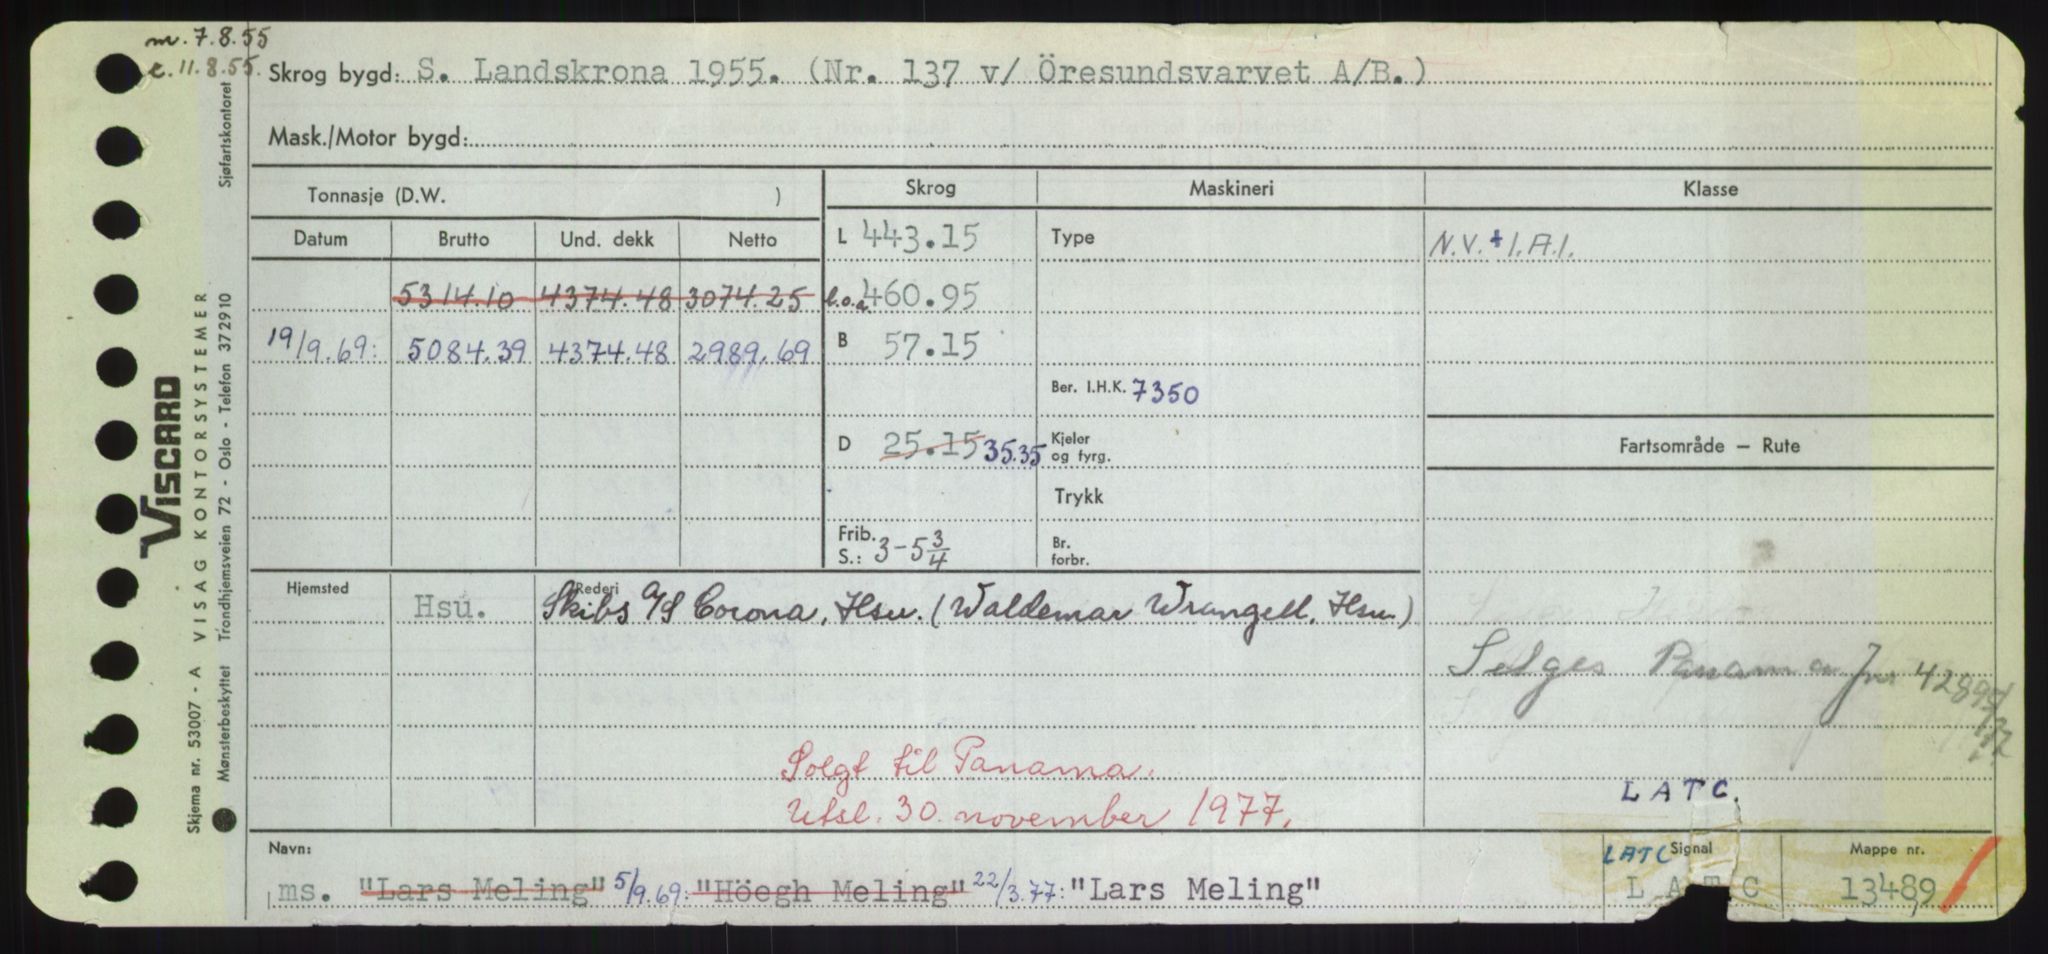 m. 7.8.55
e. 11.8.55.
Skrog bygd: S. Landskrona 1955. (Nr. 137 v/ Öresundsvarvet A/B.)
Mask./Motor bygd:
Tonnasje (D.W. )
Skrog
Maskineri
Klasse
Datum Brutto Und. dekk Netto
L 443.15
Type
N.V. + 1.A.1.
5314.10 4374.48 3074.25
l.o.a. 460.95
19/9.69: 5084.39 4374.48 2989.69
B 57.15
Ber. I.H.K. 7350
D 25.15 35.35
Kjeler
og fyrg.
Fartsområde – Rute
Trykk
Frib.
S.: 3-5 3/4
Br.
forbr.
Hjemsted
Hsu.
Rederi
Skibs A/S Corona, Hsu. (Waldemar Wrangell, Hsu.)
Selges Panama Jnr 42895
Solgt til Panama.
Utsl. 30. november 1977.
LATC.
Navn:
ms. "Lars Meling" 5/9.69: "Höegh Meling" 22/3.77: "Lars Meling"
LATC Signal
LATC
Mappe nr.
13489
Sjøfartskontoret
VISCARD
VISAG KONTORSYSTEMER
Skjema nr. 53007 - A
Mønsterbeskyttet Trondhjemsveien 72 - Oslo - Telefon 372910